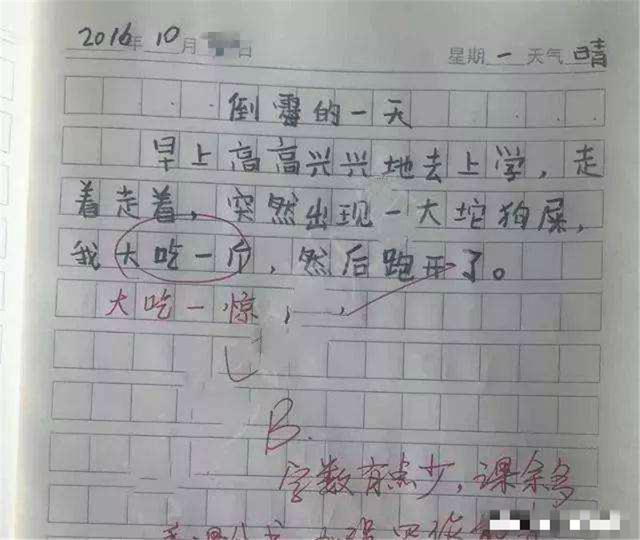 2016年10月 日
星期一 天气晴
倒霉的一天
早上高高兴兴地去上学，走
着走着，突然出现一大坨狗屎，
我大吃一斤，然后跑开了。
大吃一惊，
B.
字数有点少，课余多